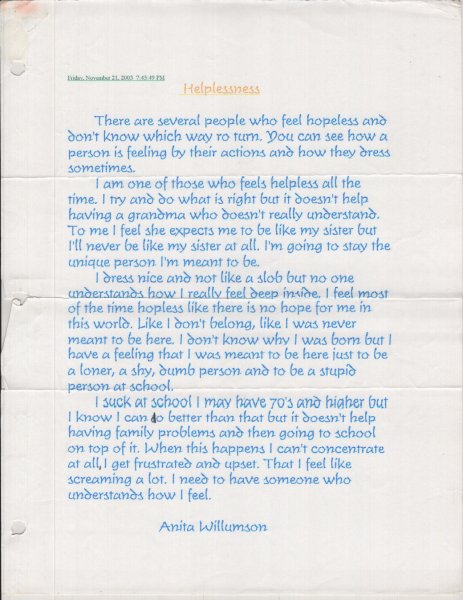 Friday, November 21, 2003 7:45:49 PM
Helplessness
There are several people who feel hopeless and
don't know which way ro turn. You can see how a
person is feeling by their actions and how they dress
sometimes.
I am one of those who feels helpless all the
time. I try and do what is right but it doesn't help
having a grandma who doesn't really understand.
To me I feel she expects me to be like my sister but
I'll never be like my sister at all. I'm going to stay the
unique person I'm meant to be.
I dress nice and not like a slob but no one
understands how I really feel deep inside. I feel most
of the time hopless like there is no hope for me in
this world. Like I don't belong, like I was never
meant to be here. I don't know why I was born but I
have a feeling that I was meant to be here just to be
a loner, a shy, dumb person and to be a stupid
person at school.
I suck at school I may have 70's and higher but
I know I can do better than that but it doesn't help
having family problems and then going to school
on top of it. When this happens I can't concentrate
at all, I get frustrated and upset. That I feel like
screaming a lot. I need to have someone who
understands how I feel.
Anita Willumson